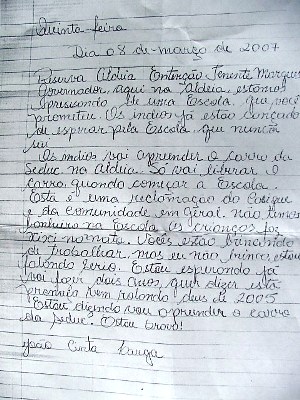 Quinta-feira
Dia 08 de março de 2007
Reserva Aldeia Extensão Tenente Marques
Governador, aqui na Aldeia, estamos
precisando de uma Escola, que você
prometeu. Os índios já estão cansados
de esperar pela Escola, que nunca
sai
Os índios vai aprender o carro da
Seduc na Aldeia. Só vai liberar o
carro, quando começar a Escola.
Esta é uma reclamação do Cacique
e da comunidade em giral. não temos
banheiro na Escola os crianças faz
xixi no mato. Vocês estão brincando
de trabalhar, mas eu não brinco, estou
falando serio. Estou esperando já
vai fazer dois anos, quer dizer esta
promessa vem rolando deis de 2005
Estou dizendo vou aprender o carro
da seduc. Estou bravo!
João Cinta Larga